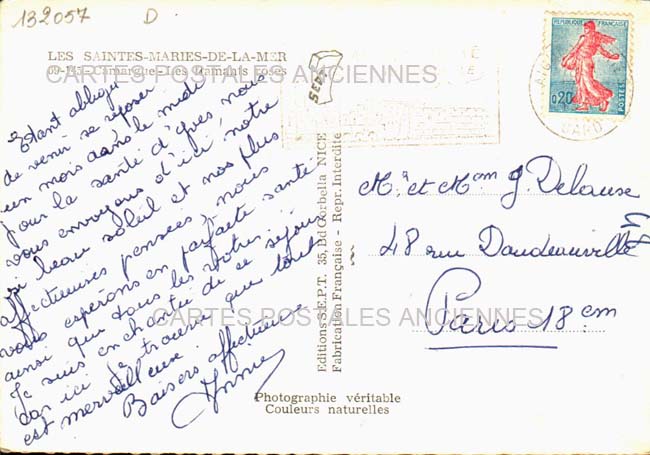 132057 D
LES SAINTES-MARIES-DE-LA-MER
CARTES POSTALES ANCIENNES
Camargue - Les Flamants roses
SEPT
REPUBLIQUE FRANÇAISE
0,20
POSTES
GARD
Etant obligée
de venir se reposer
un mois dans le midi
pour la santé d'Yves nous
vous envoyons d'ici, notre
si beau soleil et nos plus
affectueuses pensées, nous
vous espérons en parfaite santé
ainsi que tous les vôtres.
Je suis enchantée de ce séjour
car ici je trouve que tout
est merveilleux.
Baisers affectueux
Annie
Editions S.E.P.T. 35, Bd Gorbella NICE
Fabrication Française - Repr. Interdite
Mr et Mem J. Delause
48 rue Doudeauville
Paris 18 em
CARTES POSTALES ANCIENNES
Photographie véritable
Couleurs naturelles